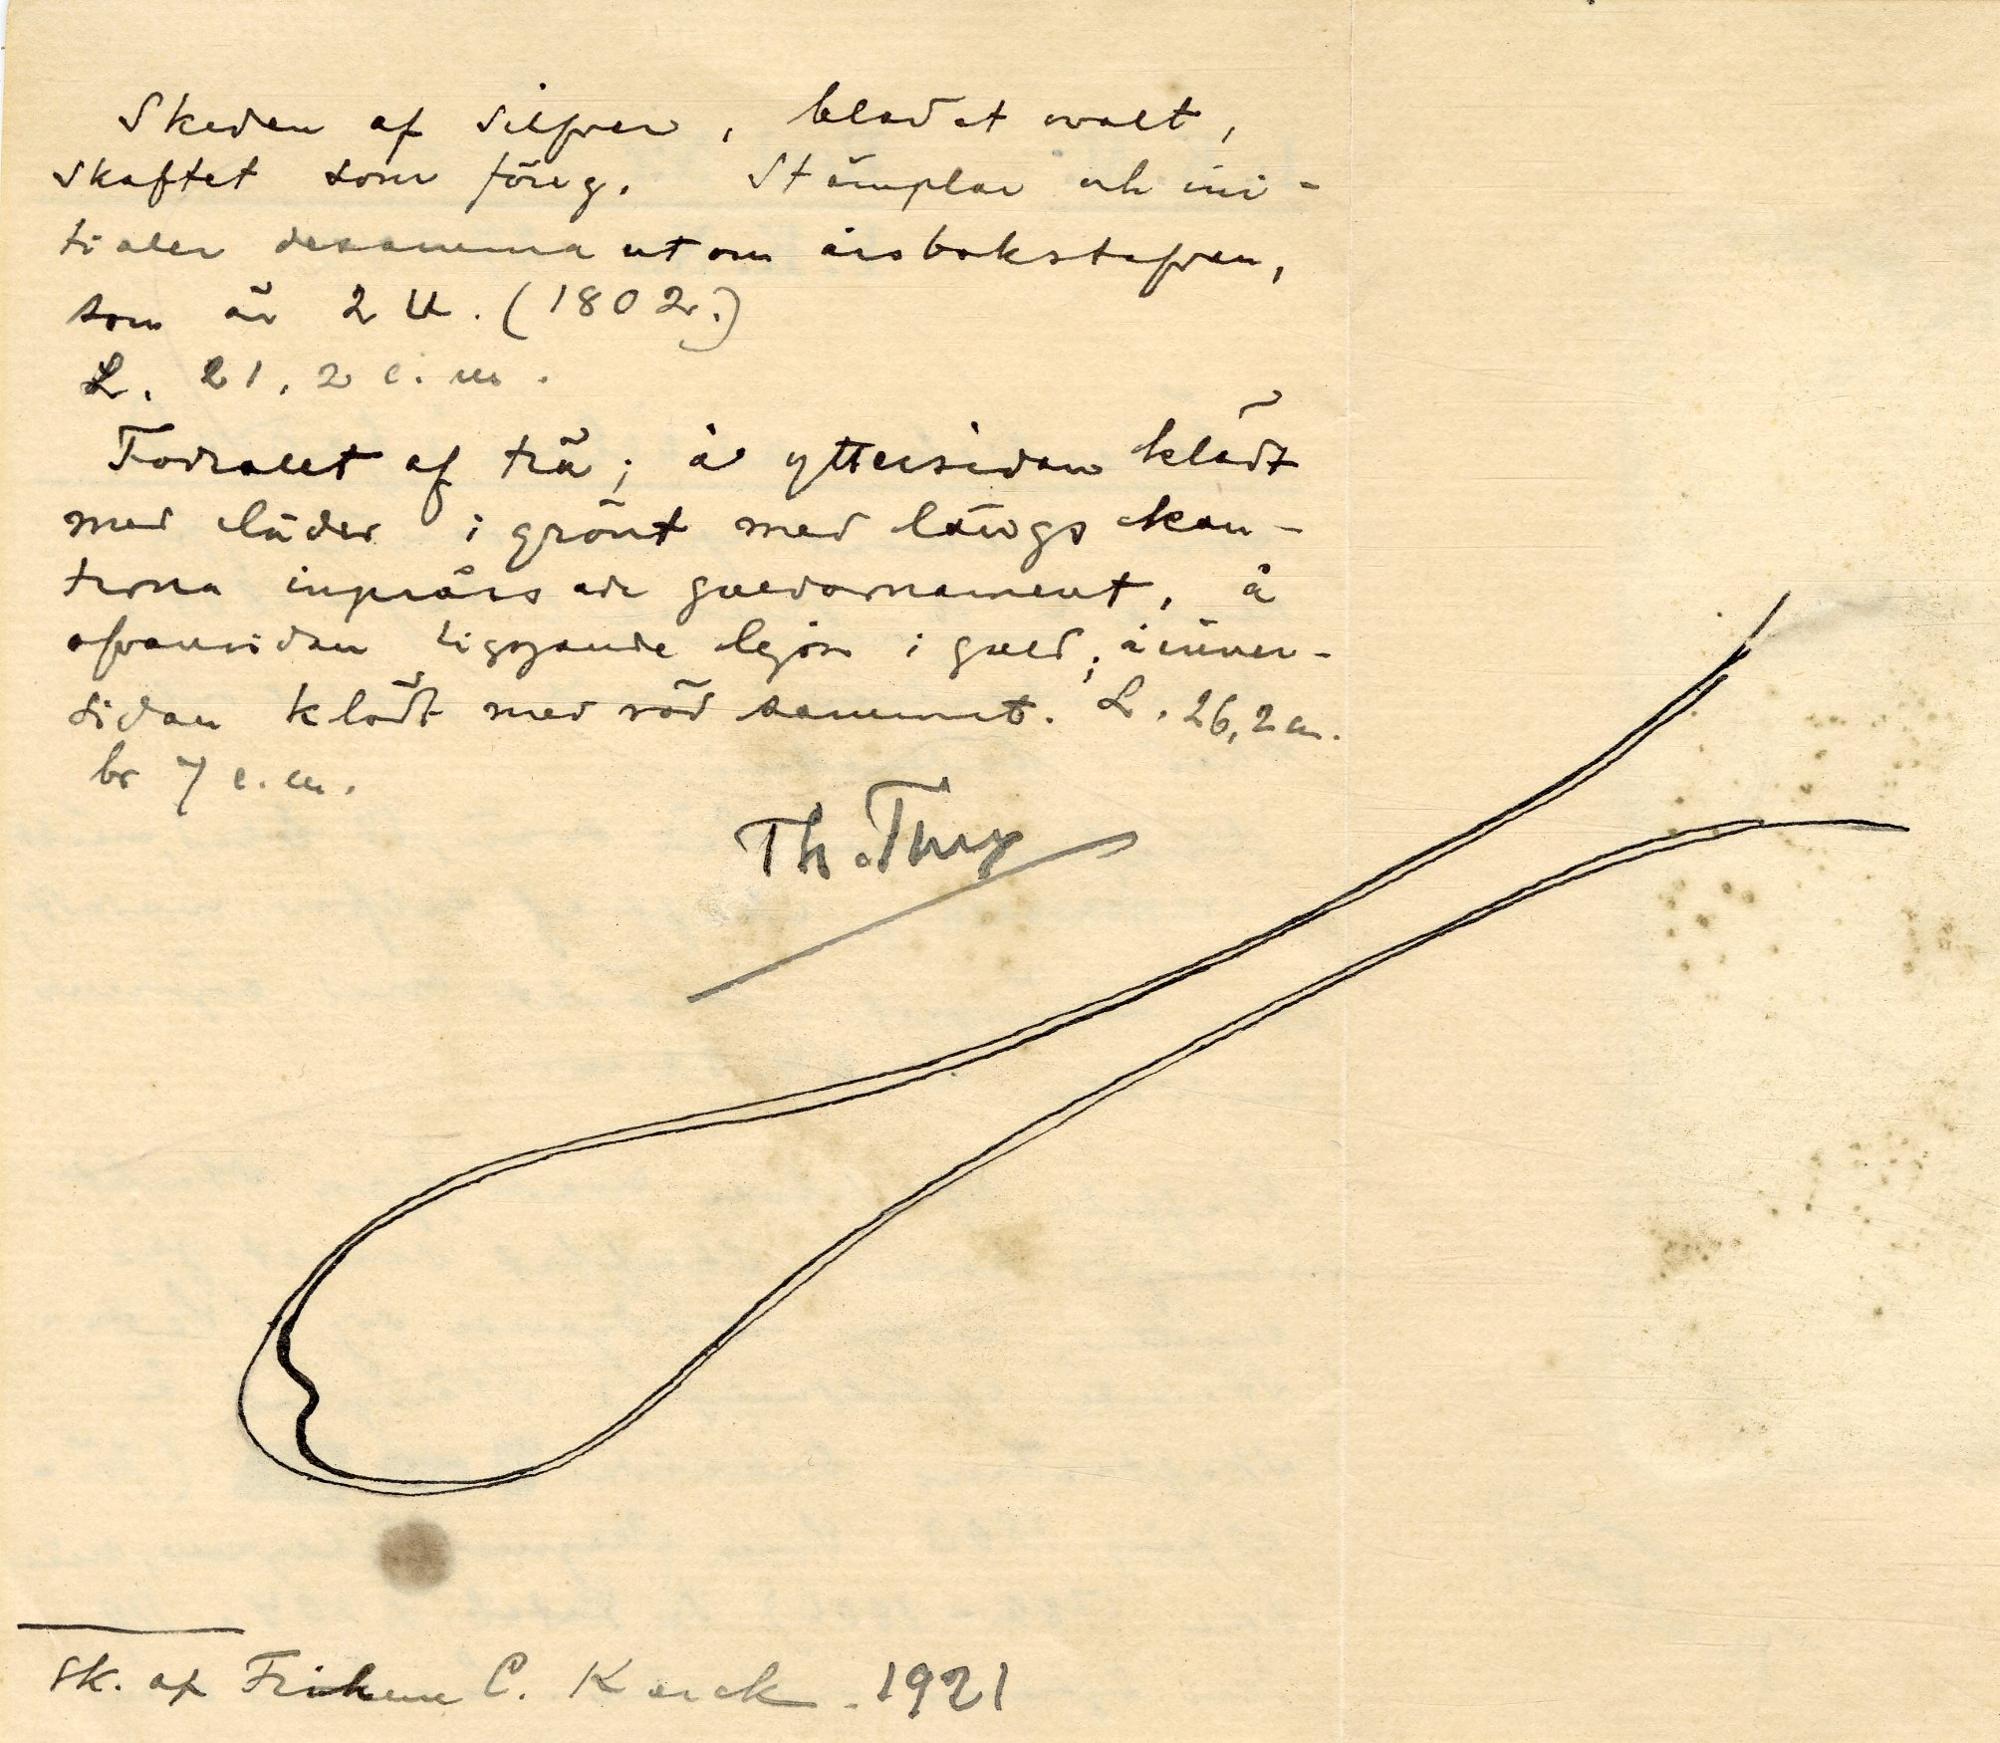 Skeden af silfver, bladet ovalt,
skaftet som föreg. Stämplar och ini-
tialer desamma utom årsbokstafven,
som är 2 U. (1802.)
L. 21,2 c.m.
Fodralet af trä; å yttersidan klädt
med läder i grönt med längs kan-
terna inprässade guldornament, å
ofvansidan liggande lejon i guld; å inner-
sidan klädt med röd sammet. L. 26,2 cm.
br 7 c.m.
Th.
Sk. af Friherre C. Kurck. 1921